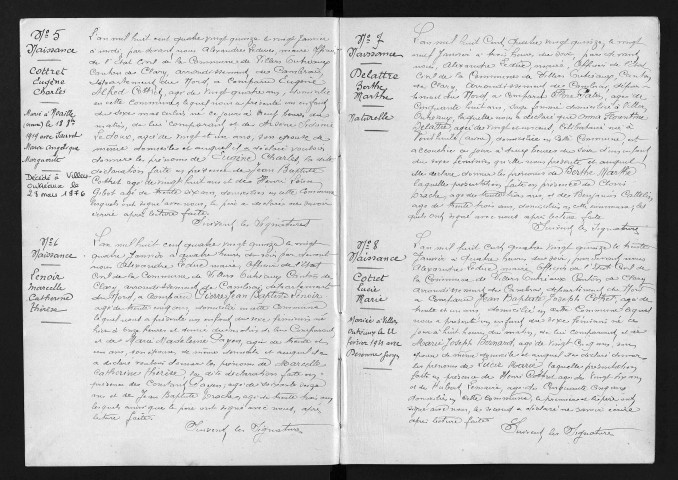 N° 5
Naissance
Cottret
Eugène
Charles
Décédé à Villers
Outréaux le
28 mars 1946
L'an mil huit cent quatre vingt quinze le vingt Janvier
à midi, par devant nous Alexandre Ledieu, maire Officier
de l'Etat Civil de la Commune de Villers Outréaux
Canton de Clary, arrondissement de Cambrai
département du Nord, a comparu Eugène
Cottret, agé de vingt quatre ans, domicilié
en cette commune, lequel nous a présenté un enfant
du sexe masculin né ce jour à neuf heures du
matin, de lui comparant et de
agée de vingt et un ans, son épouse de
même domicile et auquel il a déclaré vouloir
donner les prénoms de Eugène Charles, la dite
déclaration faite en présence de Jean Baptiste
Cottret agé de vingt huit ans et de Henri
agé de trente six ans, domiciliés en cette commune
lesquels ont signé avec nous, le père a déclaré ne savoir
écrire après lecture faite.
Suivent les Signatures
N° 6
Naissance
Lenoir
Marcelle
Catherine
Thérèse
L'an mil huit cent quatre vingt quinze le vingt
quatre Janvier à quatre heures du soir, par devant
nous Alexandre Ledieu maire, Officier de l'Etat
Civil de la Commune de Villers Outréaux Canton de
Clary, arrondissement de Cambrai, département
du Nord, a comparu Pierre Jean Baptiste Lenoir
agé de trente cinq ans, domicilié en cette Commune
lequel nous a présenté un enfant du sexe féminin né
hier à onze heures et demie du matin de lui Comparant
et de Marie Madeleine Payen, agée de trente et
un ans, son épouse, de même domicile et auquel il
a déclaré vouloir donner les prénoms de Marcelle
Catherine Thérèse la dite déclaration faite en
présence de Constant Payen, agé de soixante
ans et de Jean Baptiste Drache, agé de trente trois ans,
lesquels ainsi que le père ont signé avec nous, après
lecture faite.
Suivent les Signatures
N° 7
Naissance
Delattre
Berthe
Marthe
Naturelle
L'an mil huit cent quatre vingt quinze, le vingt
huit Janvier à trois heures du soir, par devant
nous, Alexandre Ledieu maire, Officier de l'Etat
Civil de la Commune de Villers Outréaux, Canton
de Clary, arrondissement de Cambrai, département
du Nord, a comparu
Cinquante huit ans, sage femme domiciliée à Villers
Outréaux, laquelle nous a déclaré que
Delattre agée de vingt et un ans, célibataire
domiciliée en cette Commune est
accouchée ce jour à deux heures du soir d'un enfant
du sexe féminin qu'elle nous présente et auquel
elle déclare donner les prénoms de Berthe Marthe
laquelle présentation faite en présence de Clovis
Drache, agé de trente trois ans et de Benjamin
agé de trente trois ans, domiciliés en cette commune, les
quels ont signé avec nous après lecture faite.
Suivent les Signatures
N° 8
Naissance
Cottret
Lucie
Marie
Mariée à Villers
Outréaux le 22
février 1921 avec
L'an mil huit cent quatre vingt quinze le trente
Janvier à quatre heures du soir, par devant nous
Alexandre Ledieu, maire Officier de l'Etat Civil de
la Commune de Villers Outréaux Canton de Clary
arrondissement de Cambrai, département du Nord
a comparu Jean Baptiste Joseph Cottret, agé de
trente et un ans, domicilié en cette Commune lequel
nous a présenté un enfant du sexe féminin né ce
jour à huit heures du matin, de lui comparant et de
Marie Joseph Bernard, agée de vingt cinq ans, son
épouse de même domicile et auquel il a déclaré donner
les prénoms de Lucie Marie, laquelle présentation
faite en présence de Henri Cottret agé de vingt six ans
et de agé de Cinquante Cinq ans
domiciliés en cette Commune, le premier témoin ont
signé avec nous, le second a déclaré ne savoir écrire
après lecture faite.
Suivent les Signatures